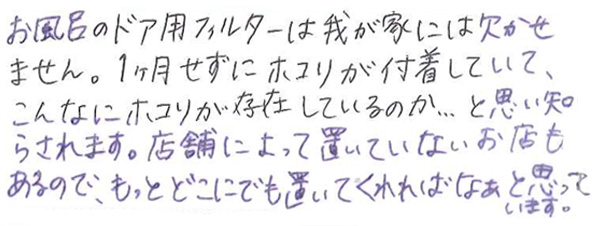 お風呂のドア用フィルターは我が家には欠かせ
ません。1ヶ月せずにホコリが付着していて、
こんなにホコリが存在しているのか…と思い知
らされます。店舗によって置いていないお店も
あるので、もっとどこにでも置いてくれればなぁと思って
います。